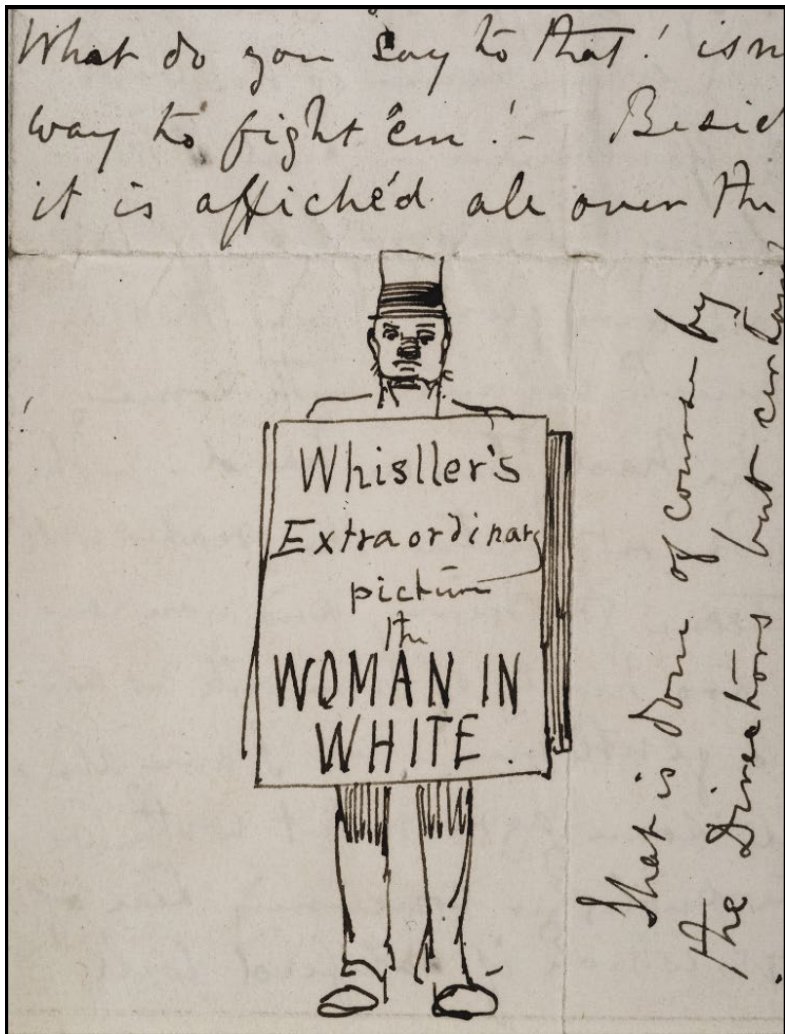 What do you say to that! isn
way to fight 'em! - Besid
it is affiché'd all over the
Whisller's
Extraordinary
picture
the
WOMAN IN
WHITE.
That is done of course by
the Directors but certain